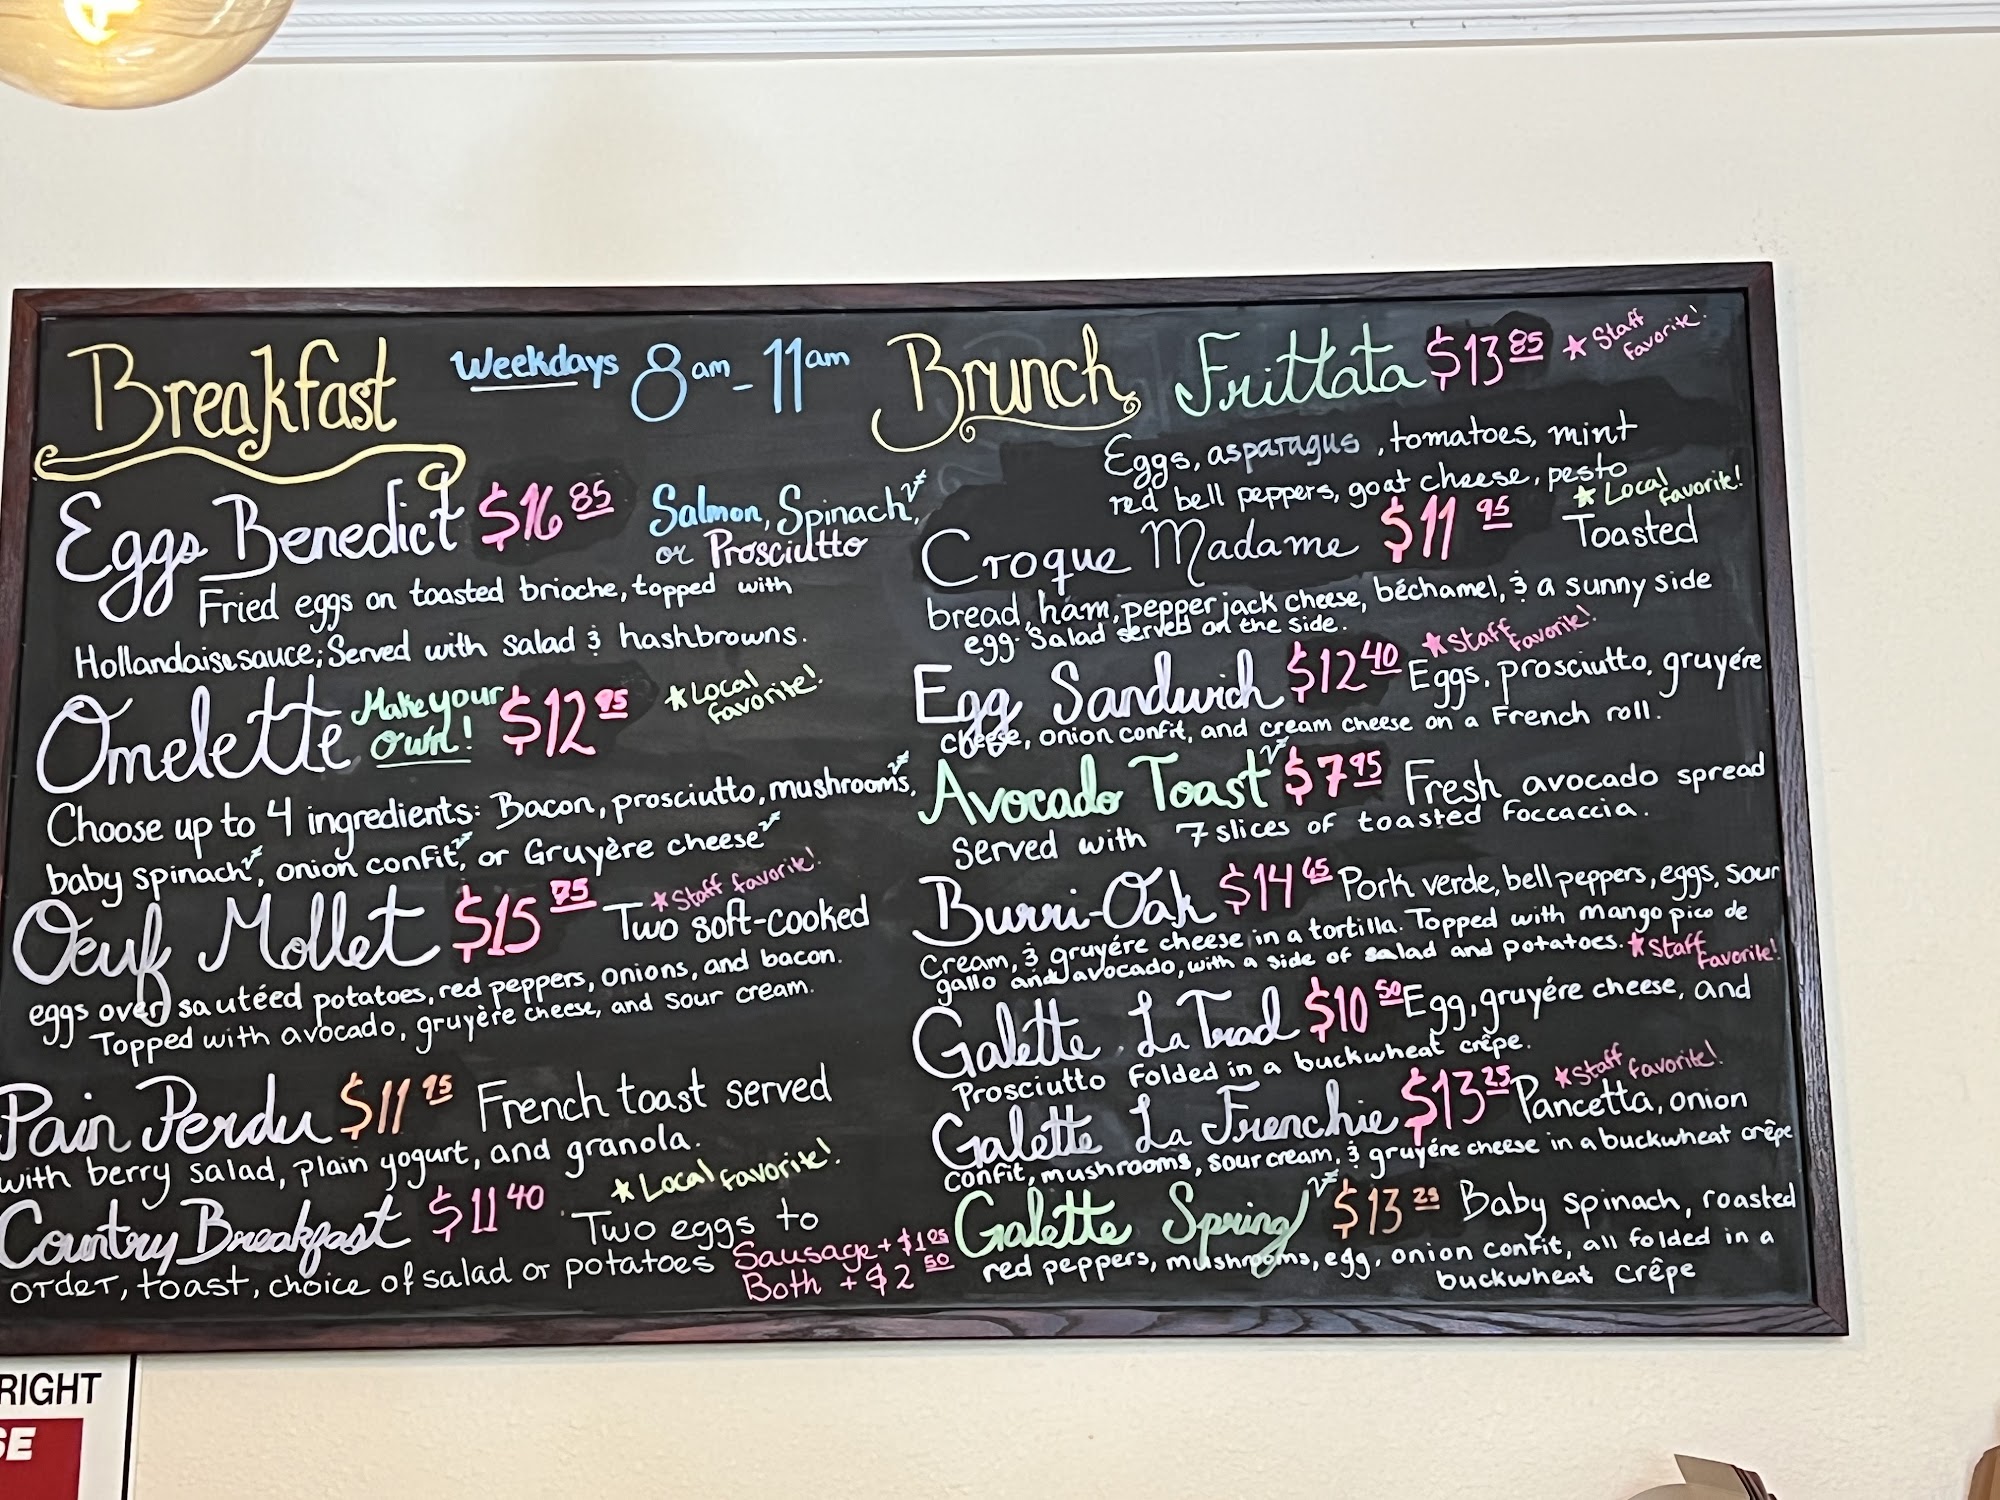 Breakfast Weekdays 8am - 11am
Eggs Benedict $16 85 Salmon, Spinach,
or Prosciutto
Fried eggs on toasted brioche, topped with
Hollandaise sauce; Served with salad & hashbrowns.
Omelette Make your own! $12 95 ★ Local favorite!
Choose up to 4 ingredients: Bacon, prosciutto, mushrooms,
baby spinach, onion confit, or Gruyère cheese
Oeuf Mollet $15 75 ★ Staff favorite! Two soft-cooked
eggs over sautéed potatoes, red peppers, onions, and bacon.
Topped with avocado, gruyère cheese, and sour cream.
Pain Perdu $11 95 French toast served
with berry salad, plain yogurt, and granola.
Country Breakfast $11 40 ★ Local favorite! Two eggs to
order, toast, choice of salad or potatoes Sausage + $1 25
Both + $2 50
Brunch Frittata $13 85 ★ Staff favorite!
Eggs, asparagus, tomatoes, mint
red bell peppers, goat cheese, pesto
Croque Madame $11 95 ★ Local favorite! Toasted
bread, ham, pepper jack cheese, béchamel, & a sunny side
egg. Salad served on the side.
Egg Sandwich $12 40 ★ Staff favorite! Eggs, prosciutto, gruyére
cheese, onion confit, and cream cheese on a French roll.
Avocado Toast $7 95 Fresh avocado spread
Served with 7 slices of toasted foccaccia.
Burri-Oak $14 65 Pork verde, bell peppers, eggs, sour
cream, & gruyére cheese in a tortilla. Topped with mango pico de
gallo and avocado, with a side of salad and potatoes. ★ Staff favorite!
Galette La Trad $10 50 Egg, gruyére cheese, and
Prosciutto folded in a buckwheat crêpe.
Galette La Frenchie $13 25 ★ Staff favorite! Pancetta, onion
confit, mushrooms, sour cream, & gruyére cheese in a buckwheat crêpe
Galette Spring $13 25 Baby spinach, roasted
red peppers, mushrooms, egg, onion confit, all folded in a
buckwheat crêpe
RIGHT
SE